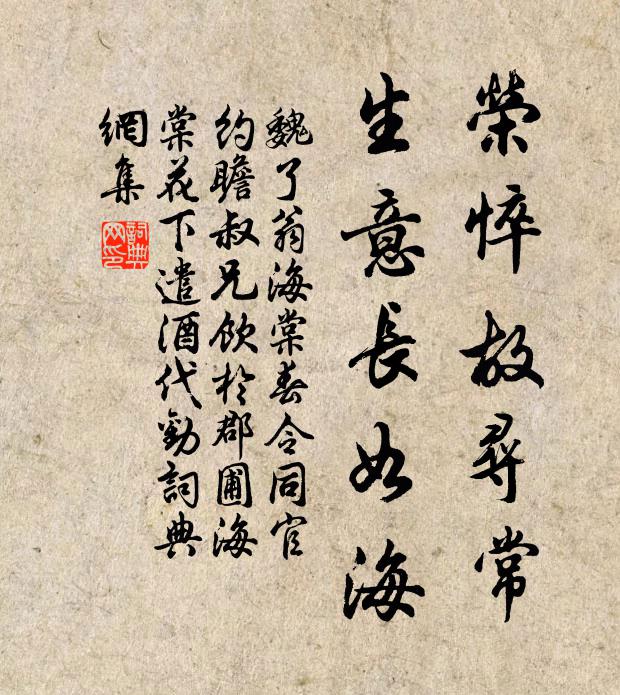 榮悴故尋常
生意長如海
魏了翁海棠春令同官
約瞻叔兄飲於郡圃海
棠花下遣酒代勸詞典
網集
詞典
网印